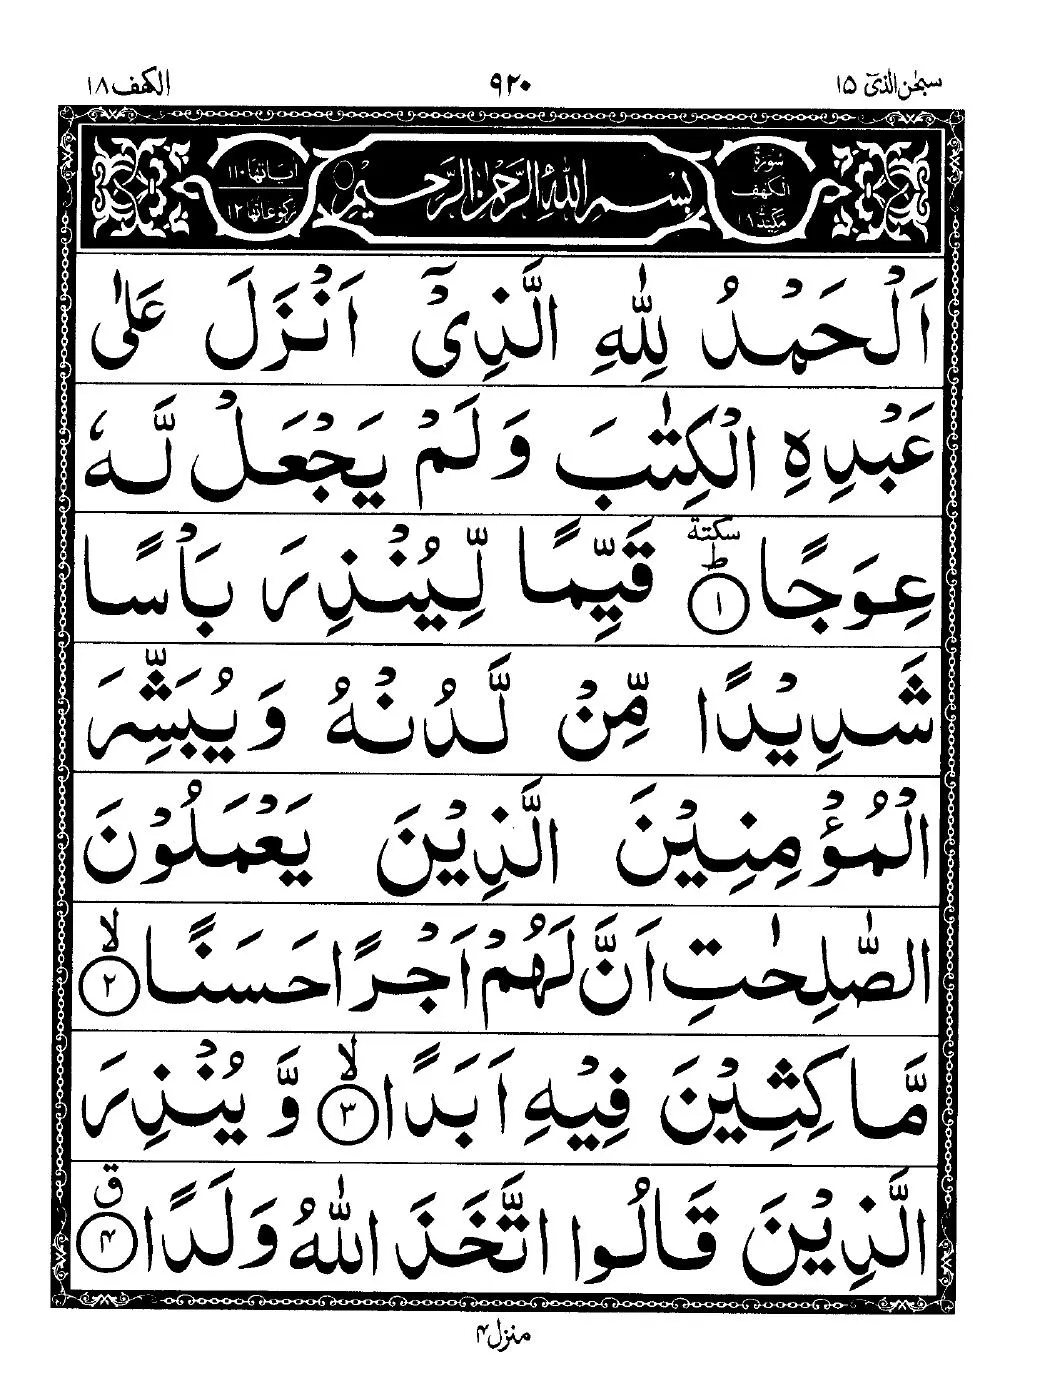 سبحٰن الذیٓ ۱۵
۹۲۰
الکهف ۱۸
سورة
الكهف
مكية ۱
بِسْمِ اللهِ الرَّحْمٰنِ الرَّحِيْمِ
اٰیاتها ۱۱۰
ركوعاتها ۱۲
اَلْحَمْدُ لِلّٰهِ الَّذِىْۤ اَنْزَلَ عَلٰى
عَبْدِهِ الْكِتٰبَ وَلَمْ يَجْعَلْ لَّهٗ
عِوَجًا ؕ سكتة ۱ قَيِّمًا لِّيُنْذِرَ بَاْسًا
شَدِيْدًا مِّنْ لَّدُنْهُ وَيُبَشِّرَ
الْمُؤْمِنِيْنَ الَّذِيْنَ يَعْمَلُوْنَ
الصّٰلِحٰتِ اَنَّ لَهُمْ اَجْرًا حَسَنًا ۙ ۲
مَّاكِثِيْنَ فِيْهِ اَبَدًا ۙ ۳ وَّيُنْذِرَ
الَّذِيْنَ قَالُوا اتَّخَذَ اللّٰهُ وَلَدًا ۴ ق
منزل ۴